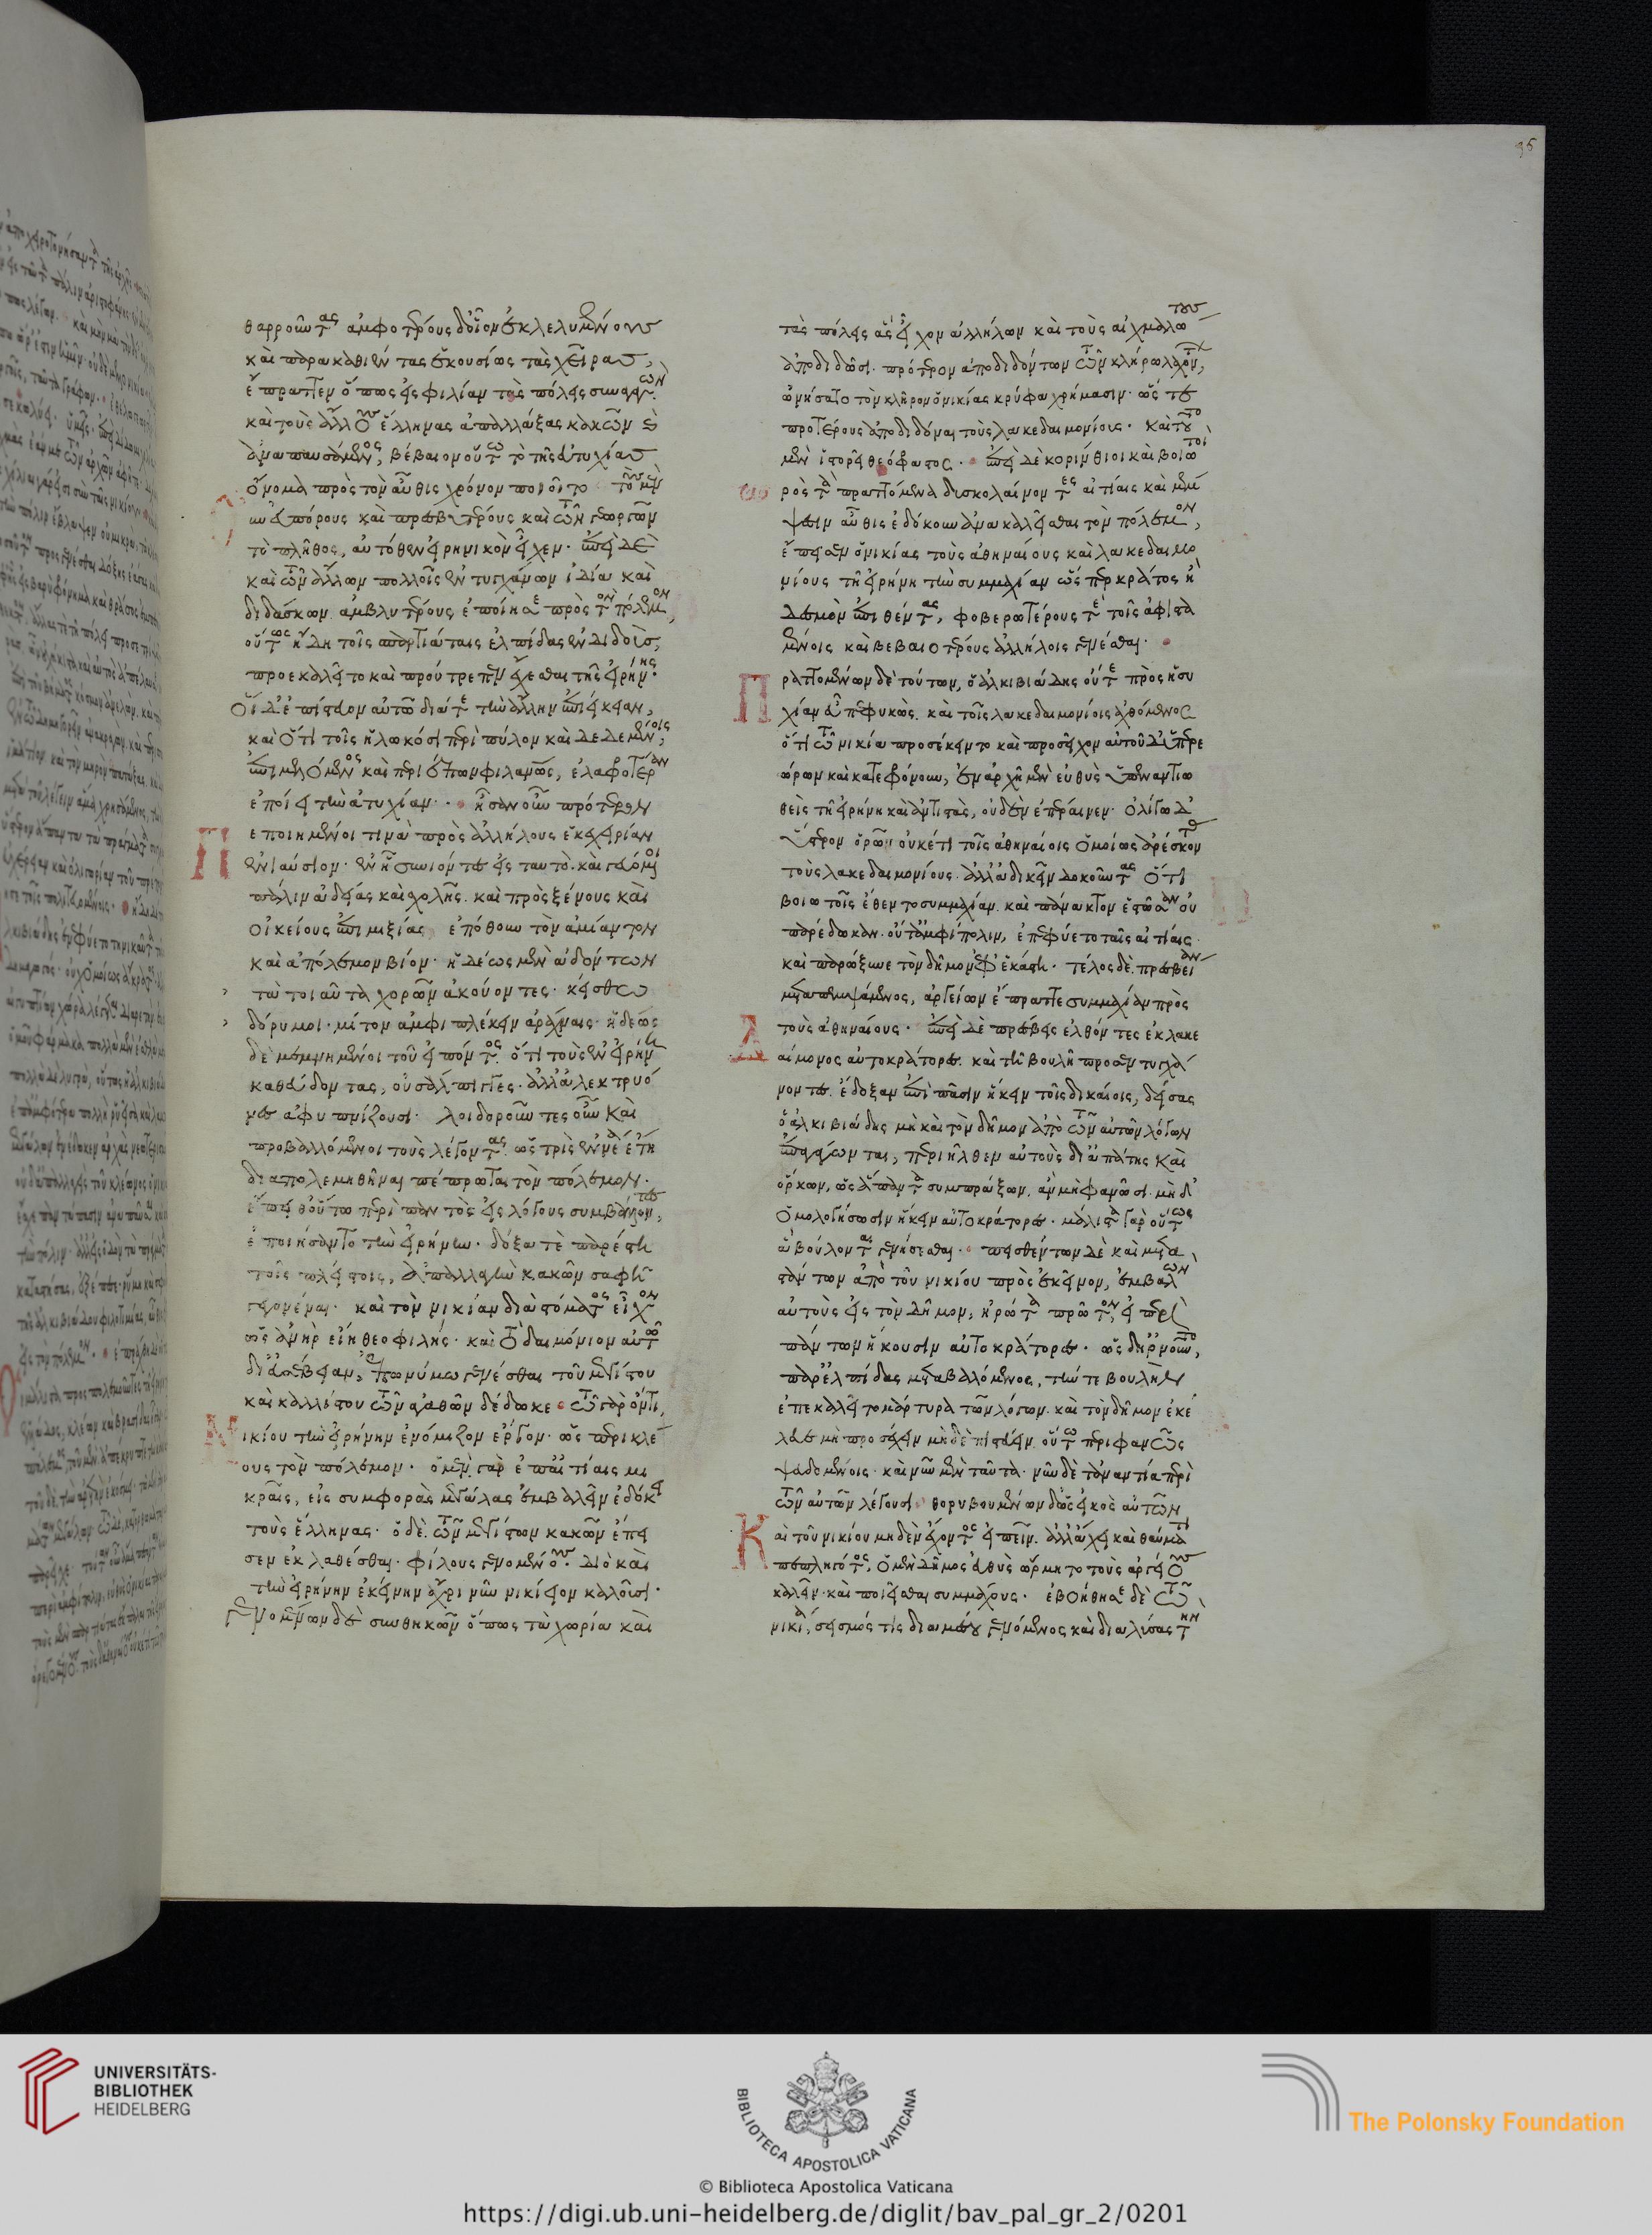 θαρροῦντας ἀμφοτέρους δ' οἷον ἐκλελυμένους
καὶ παρακαθιέντας ἑκουσίως τὰς χεῖρας,
ἔπραττεν ὅπως εἰς φιλίαν τὰς πόλεις συναγαγὼν
καὶ τοὺς ἄλλους ἕλληνας ἀπαλλάξας κακῶν καὶ
ἀναπαυσάμενος, βέβαιον οὕτω τὸ τῆς εὐτυχίας
ὄνομα πρὸς τὸν αὖθις χρόνον ποιοῖτο τοὺς μὲν
οὖν εὐπόρους καὶ πρεσβυτέρους καὶ τῶν γεωργῶν
τὸ πλῆθος, αὐτόθεν εἰρηνικὸν εἶχεν· ἐπεὶ δὲ
καὶ τῶν ἄλλων πολλοῖς ἐντυγχάνων ἰδία καὶ
διδάσκων ἀμβλυτέρους ἐποίησε πρὸς τὸν πόλεμον,
οὕτως ἤδη τοῖς σπαρτιάταις ἐλπίδας ἐνδιδοὺς,
προεκαλεῖτο καὶ προύτρεπεν ἔχεσθαι τῆς εἰρήνης·
Οἱ δ' ἐπίστευον αὐτῶ διά τε τὴν ἄλλην ἐπιείκειαν,
καὶ ὅτι τοῖς ἡλωκόσι περὶ πύλον καὶ δεδεμένοις,
ἐπιμελόμενος καὶ περιέπων φιλανθρώπως, ἐλαφροτέραν
ἐποίει τὴν ἀτυχίαν· ἦσαν οὖν πρότερον
Πεποιημένοι τινὰ πρὸς ἀλλήλους ἐκεχειρίαν
ἐνιαύσιον· ἐν ἧ συνιόντες εἰς ταυτὸ· καὶ γευόμενοι
πάλιν ἀδείας καὶ σχολῆς· καὶ πρὸς ξένους καὶ
οἰκείους ἐπιμιξίας ἐπόθουν τὸν ἀμίαντον
καὶ ἀπόλεμον βίον· ἡδέως μὲν ἀδόντων
τὰ τοιαῦτα χορῶν ἀκούοντες· κείσθω
δόρυ μοι· μίτον ἀμφιπλέκειν ἀράχναις· ἡδέως
δὲ μεμνημένοι τοῦ εἰπόντος· ὅτι τοὺς ἐν εἰρήνη
καθεύδοντας, οὐ σάλπιγγες· ἀλλ' ἀλεκτρυό
νες ἀφυπνίζουσι· λοιδοροῦντες οὖν καὶ
προβαλλόμενοι τοὺς λέγοντας· ὡς τρὶς ἐννέα ἔτη
διαπολεμηθῆναι πέπρωται τὸν πόλεμον·
ἔπειθ' οὕτω περὶ παντὸς εἰς λόγους συμβάλλοντες,
ἐποιήσαντο τὴν εἰρήνην· δόξα τὲ παρέστη
τοῖς πλείστοις, ἀπαλλαγὴν κακῶν σαφῆ
γεγονέναι· καὶ τὸν νικίαν διὰ στόματος εἶχον
ὡς ἀνὴρ εἴη θεοφιλής· καὶ τὸ δαιμόνιον αὐτῶ
δι' εὐσέβειαν, ἐπωνύμω γενέσθαι τοῦ μεγίστου
καὶ καλλίστου τῶν ἀγαθῶν δέδωκε τῶ γὰρ ὄντι,
Νικίου τὴν εἰρήνην ἐνόμιζον ἔργον· ὡς περικλέ
ους τὸν πόλεμον· ὁ μὲν γὰρ ἐπ' αἰτίαις μι
κραῖς, εἰς συμφορὰς μεγάλας ἐμβαλεῖν ἐδόκει
τοὺς ἕλληνας· ὁ δὲ τῶν μεγίστων κακῶν ἔπει
σεν ἐκλαθέσθαι· φίλους γενομένους· διὸ καὶ
τὴν εἰρήνην ἐκείνην ἄχρι νῦν νικίειον καλοῦσι·
Γενομένων δὲ συνθηκῶν ὅπως τὰ χωρία καὶ
τὰς πόλεις ἃς εἶχον ἀλλήλων καὶ τοὺς αἰχμαλώτους
ἀποδιδῶσι· πρότερον ἀποδιδόντων τῶν κλήρω λαχόντων,
ὠνήσατο τὸν κλῆρον ὁ νικίας κρύφα χρήμασιν· ὥστε
προτέρους ἀποδιδόναι τοὺς λακεδαιμονίους· καὶ τοῦτο
μὲν ἱστορεῖ θεόφραστος· ἐπεὶ δὲ κορίνθιοι καὶ βοιωτοὶ
πρὸς τὰ πραττόμενα δυσκολαίνοντες αἰτίαις καὶ μέμ
ψεσιν αὖθις ἐδόκουν ἀνακαλεῖσθαι τὸν πόλεμον,
ἔπεισεν ὁ νικίας τοὺς ἀθηναίους καὶ λακεδαιμο
νίους τῆ εἰρήνη τὴν συμμαχίαν ὥσπερ κράτος ἢ
δεσμὸν ἐπιθέντας, φοβερωτέρους τε τοῖς ἀφιστα
μένοις καὶ βεβαιοτέρους ἀλλήλοις γενέσθαι·
Πραττομένων δὲ τούτων, ὁ ἀλκιβιάδης οὔτε πρὸς ἡσυ
χίαν εὖ πεφυκὼς· καὶ τοῖς λακεδαιμονίοις ἀχθόμενος
ὅτι τῶ νικία προσέκειντο καὶ προσεῖχον αὐτοῦ δ' ὑπερε
ώρων καὶ κατεφρόνουν, ἐν ἀρχῆ μὲν εὐθὺς ὑπεναντιω
θεὶς τῆ εἰρήνη καὶ ἀντιστὰς, οὐδὲν ἐπέραινεν· ὀλίγω δ'
ὕστερον ὁρῶν οὐκέτι τοῖς ἀθηναίοις ὁμοίως ἀρέσκοντας
τοὺς λακεδαιμονίους· ἀλλ' ἀδικεῖν δοκοῦντας ὅτι
βοιωτοῖς ἔθεντο συμμαχίαν· καὶ πάνακτον ἑστῶσαν οὐ
παρέδωκαν· οὐτ' ἀμφίπολιν, ἐπεφύετο ταῖς αἰτίαις·
καὶ παρώξυνε τὸν δῆμον ἐφ' ἑκάστη· τέλος δὲ πρεσβείαν
μεταπεμψάμενος, ἀργείων ἔπραττε συμμαχίαν πρὸς
τοὺς ἀθηναίους· ἐπεὶ δὲ πρέσβεις ἐλθόντες ἐκ λακε
Δαίμονος αὐτοκράτορες· καὶ τῆ βουλῆ προεντυγχά
νοντες· ἔδοξαν ἐπὶ πᾶσιν ἥκειν τοῖς δικαίοις, δείσας
ὁ ἀλκιβιάδης μὴ καὶ τὸν δῆμον ἀπὸ τῶν αὐτῶν λόγων
ἐπαγάγωνται, περιῆλθεν αὐτοὺς δι' ἀπάτης καὶ
ὅρκων, ὡς ἅπαντα συμπράξων, ἂν μὴ φανῶσι· μὴ δ'
ὁμολογήσωσιν ἥκειν αὐτοκράτορες· μάλιστα γὰρ οὕτως
ἃ βούλονται γενήσεσθαι· πεισθέντων δὲ καὶ μετα
στάντων ἀπὸ τοῦ νικίου πρὸς ἐκεῖνον, ἐμβαλὼν
αὐτοὺς εἰς τὸν δῆμον, ἠρώτα πρῶτον, εἰ περὶ
πάντων ἥκουσιν αὐτοκράτορες· ὡς δ' ἠρνοῦντο,
παρ' ἐλπίδας μεταβαλόμενος, τήν τε βουλὴν
ἐπεκαλεῖτο μάρτυρα τῶν λόγων· καὶ τὸν δῆμον ἐκέ
λευε μὴ προσέχειν μὴ δὲ πιστεύειν οὕτω περιφανῶς
ψευδομένοις· καὶ νῦν μὲν ταῦτα· νῦν δὲ τἀναντία περὶ
τῶν αὐτῶν λέγουσι· θορυβουμένων δ' ὡς εἰκὸς αὐτῶν
Καὶ τοῦ νικίου μηδὲν ἔχοντος εἰπεῖν· ἀλλ' ἄχει καὶ θαύματι
πεπληγότος, ὁ μὲν δῆμος εὐθὺς ὥρμητο τοὺς ἀργείους
καλεῖν· καὶ ποιεῖσθαι συμμάχους· ἐβοήθησε δὲ τῶ
νικία, σεισμός τις διαμέσου γενόμενος καὶ διαλύσας τὴν
UNIVERSITÄTS-
BIBLIOTHEK
HEIDELBERG
BIBLIOTECA APOSTOLICA VATICANA
The Polonsky Foundation
© Biblioteca Apostolica Vaticana
https://digi.ub.uni-heidelberg.de/diglit/bav_pal_gr_2/0201